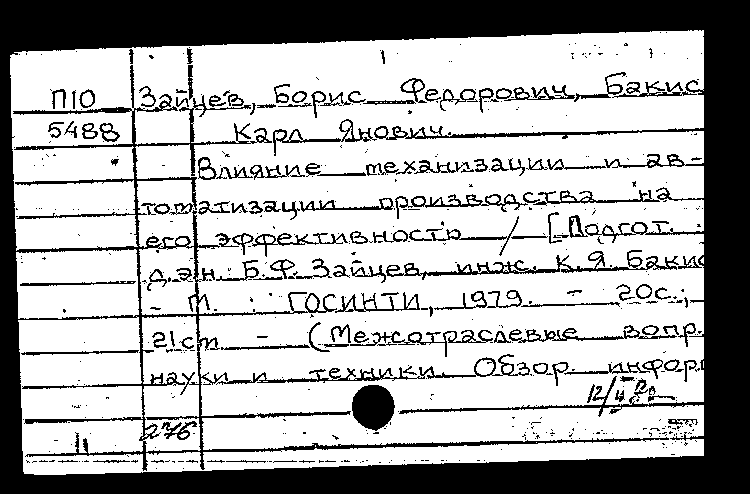 П10 Зайцев, Борис Федорович, Бакис
5488 Карл Янович.
Влияние механизации и ав-
томатизации производства на
его эффективность / [Подгот.
д.э.н. Б.Ф. Зайцев, инж. К.Я. Бакис
- М. : ГОСИНТИ, 1979. - 20с.;
21см - (Межотраслевые вопр.
науки и техники. Обзор. информ
276